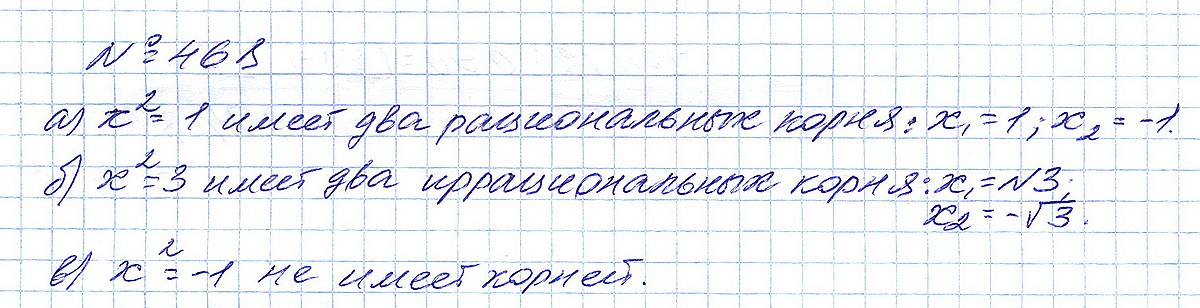 № 468
а) x² = 1 имеет два рациональных корня: x₁ = 1; x₂ = -1.
б) x² = 3 имеет два иррациональных корня: x₁ = √3;
x₂ = -√3.
в) x² = -1 не имеет корней.